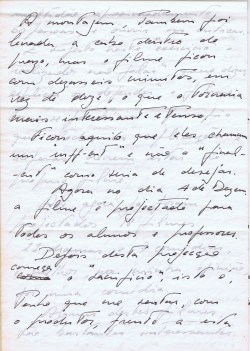 A montagem, também foi
levada a cabo dentro do
prazo, mas o filme, ficou
com dezasseis minutos, em
vez de doze, o que o tornaria
mais interessante e tenso.
Ficou aquilo que eles chamam
um "ruff cut" e não o "final-
cut" como seria de desejar.
Agora no dia 4 de Dezem
o filme é projectado para
todos os alunos e professores
Depois desta projecção
começa o "sacrifício" isto é,
tenho que me sentar, com
o produtor, frente a esta